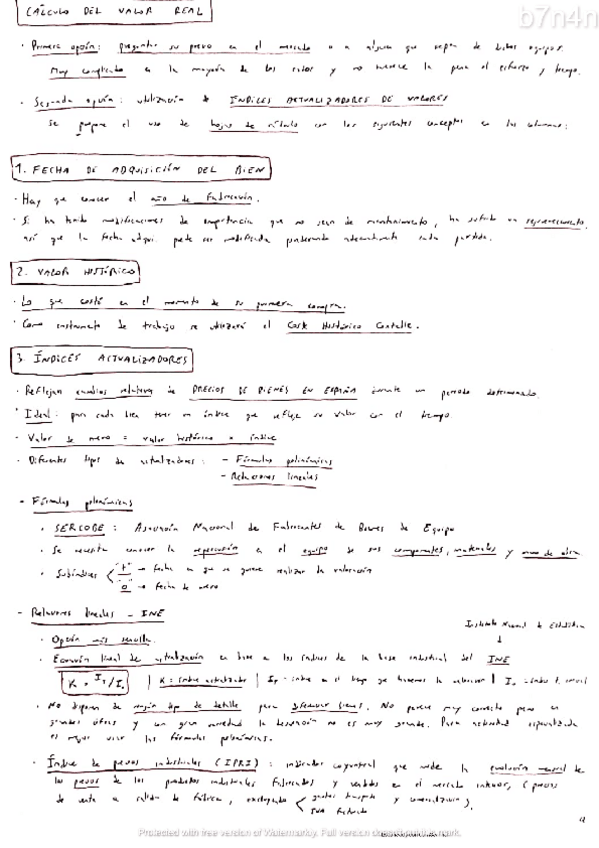 CÁLCULO DEL VALOR REAL
b7n4n
· Primera opción: preguntar su precio en el mercado o a alguien que sepa de dichos equipos.
Muy complicado en la mayoría de los casos y no merece la pena el esfuerzo y tiempo.
· Segunda opción: utilización de ÍNDICES ACTUALIZADORES DE VALORES
Se propone el uso de hojas de cálculo con los siguientes conceptos en las columnas:
1. FECHA DE ADQUISICIÓN DEL BIEN
· Hay que conocer el año de fabricación.
· Si ha tenido modificaciones de importancia que no sean de mantenimiento, ha sufrido un rejuvenecimiento,
así que la fecha adqui. puede ser modificada ponderando adecuadamente cada partida.
2. VALOR HISTÓRICO
· Lo que costó en el momento de su primera compra.
· Como instrumento de trabajo se utilizará el Coste Histórico Contable.
3. ÍNDICES ACTUALIZADORES
· Reflejan cambios relativos de PRECIOS DE BIENES EN ESPAÑA durante un periodo determinado.
· Ideal: para cada bien tener un índice que refleje su valor con el tiempo.
· Valor de nuevo = valor histórico x índice
· Diferentes tipos de actualizadores: - Fórmulas polinómicas
- Relaciones lineales
- Fórmulas polinómicas
· SERCOBE: Asociación Nacional de Fabricantes de Bienes de Equipo
· Se necesita conocer la repercusión en el equipo de sus componentes, materiales y mano de obra
· Subíndices "t" → fecha en que se quiere realizar la valoración
"o" → fecha de nuevo
- Relaciones lineales - INE
Instituto Nacional de Estadística
· Opción más sencilla.
· Ecuación lineal de actualización en base a los índices de la base industrial del INE
K = It/Io | K = índice actualizador | It = índice en el tiempo que hacemos la valoración | Io = índice t. inicial
· No disponen de ningún tipo de detalle para diferenciar bienes. No parece muy correcto pero en
grandes cifras y un gran inmovilizado la desviación no es muy grande. Para maquinaria especializada
es mejor usar las fórmulas polinómicas.
· Índice de precios industriales (IPRI): indicador coyuntural que mide la evolución mensual de
los precios de los productos industriales fabricados y vendidos en el mercado interior, (precios
de venta a salida de fábrica, excluyendo gastos transporte y comercialización).
IVA facturado
Protected with free version of Watermarkly. Full version doesn't put this mark.